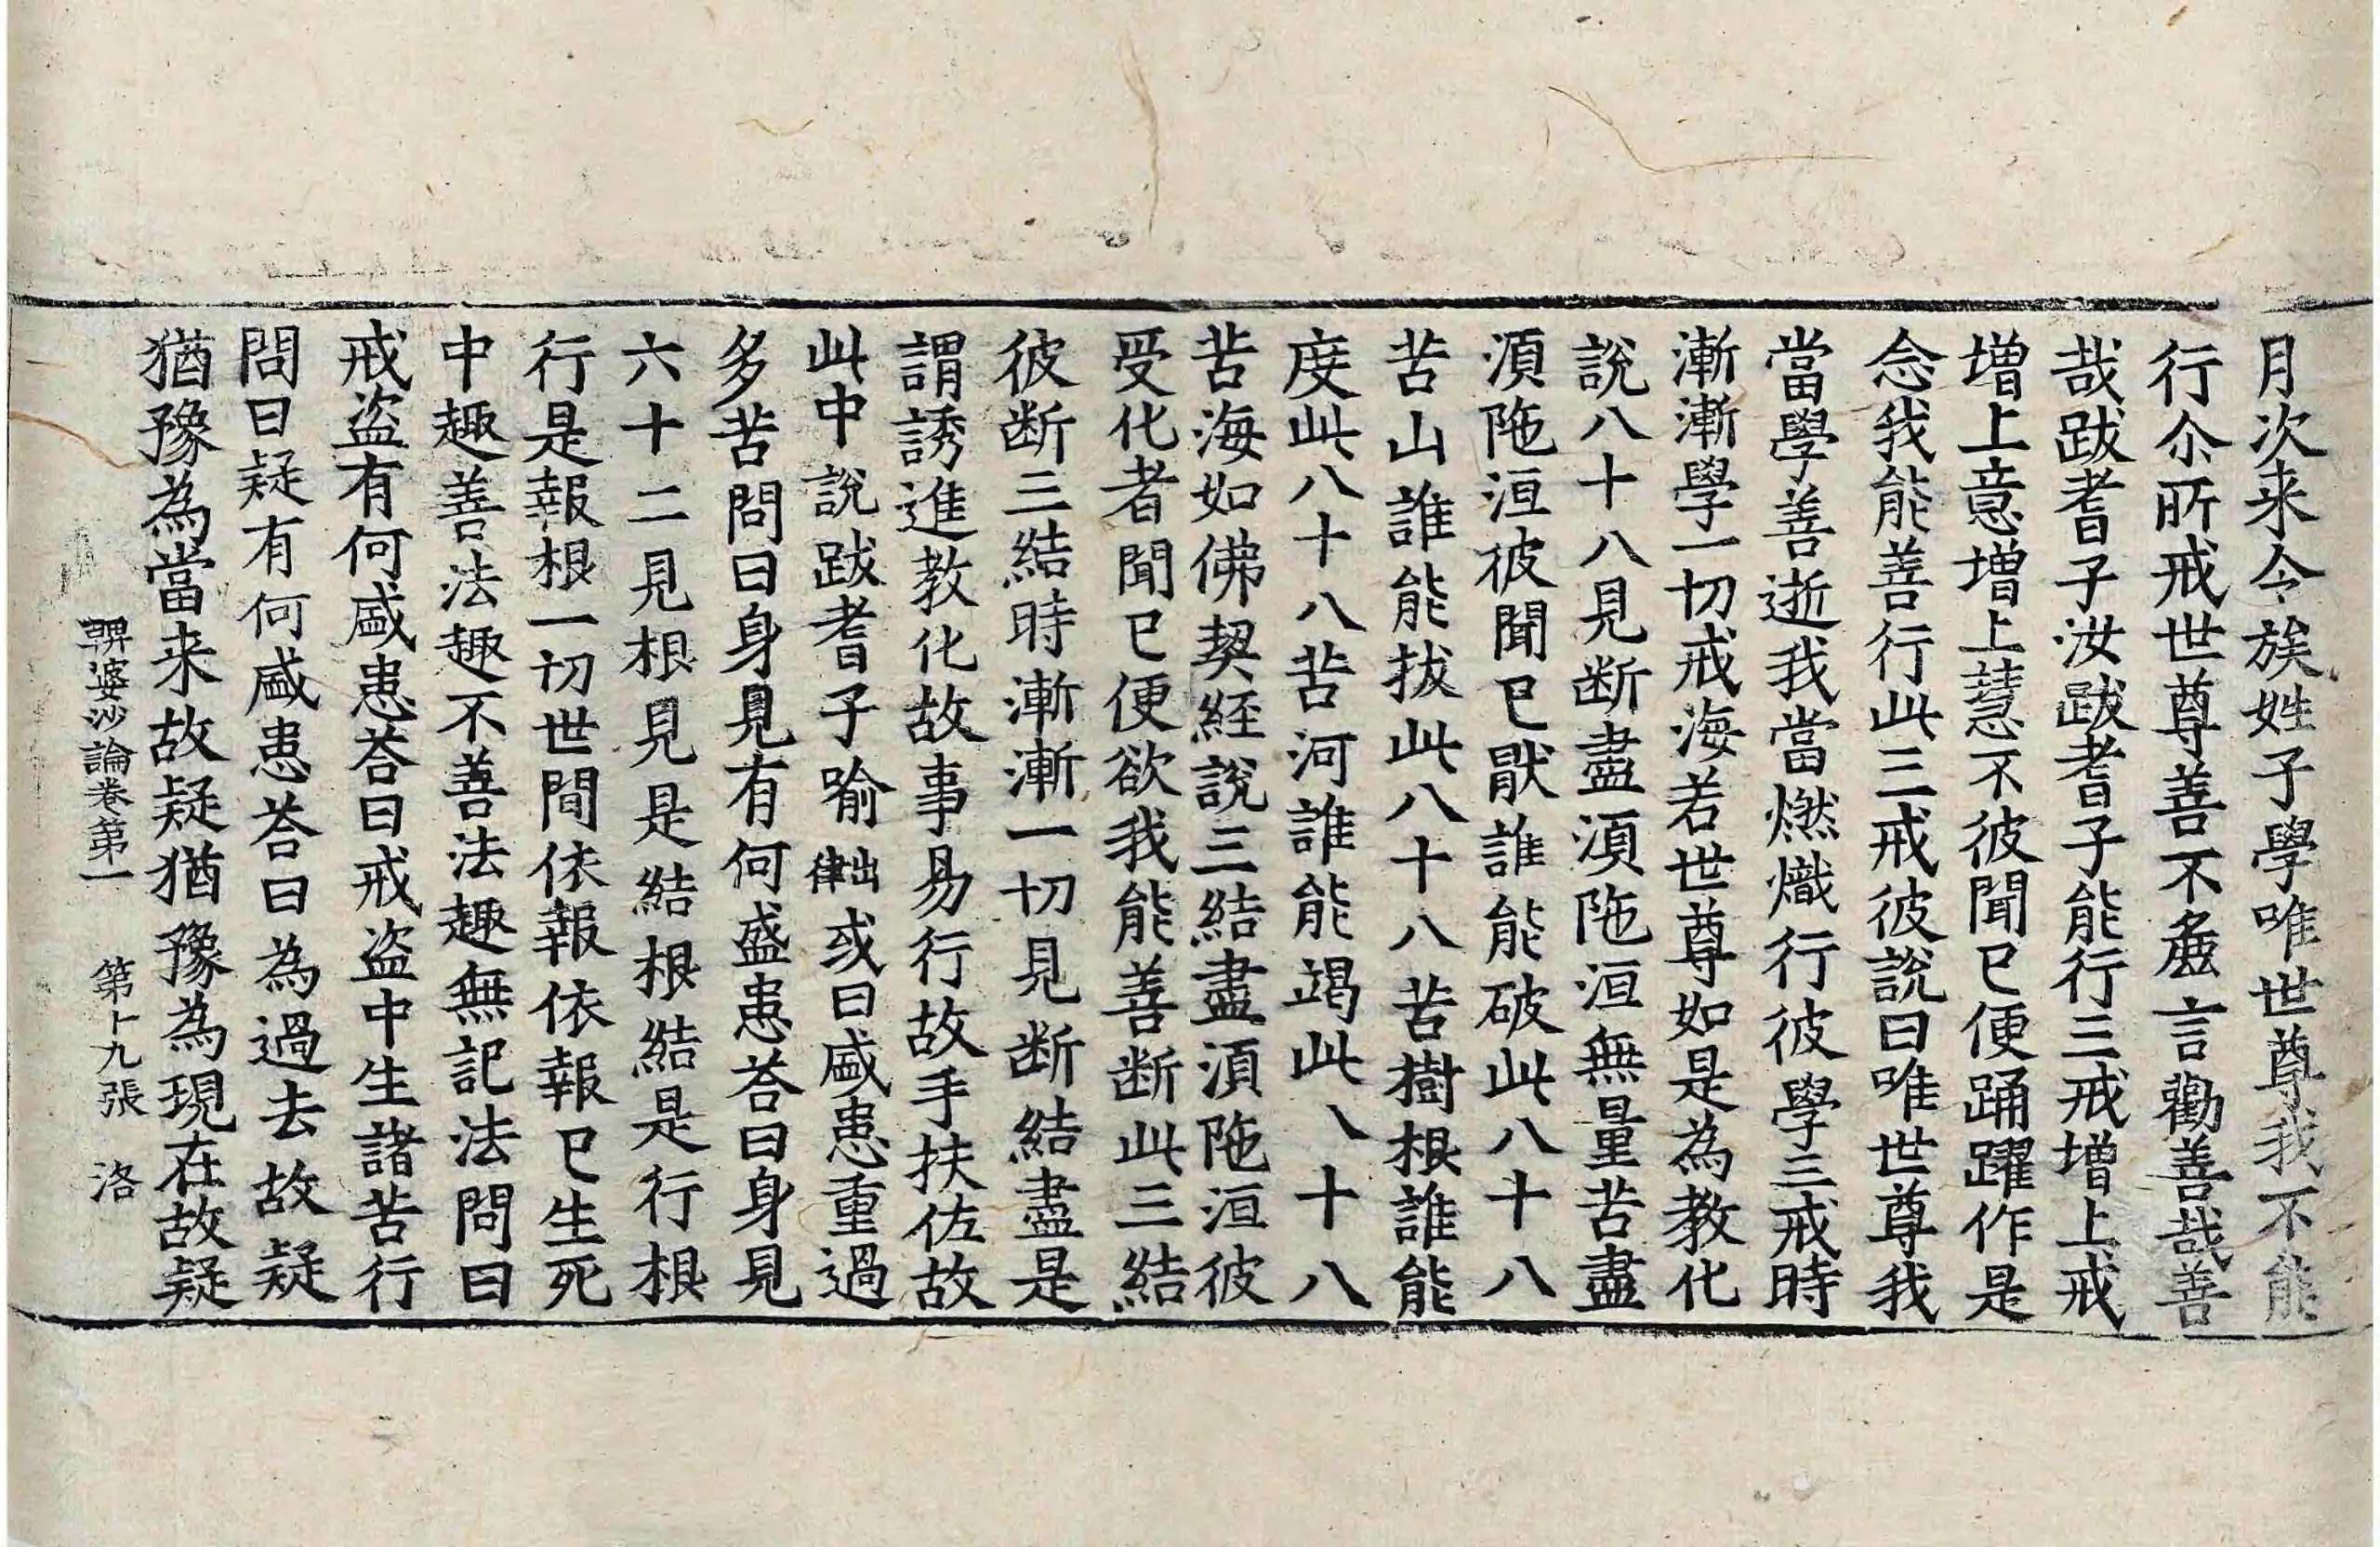 月次来令族姓子學唯世尊我不能
行尒所戒世尊善不麁言勸善哉善
哉跋耆子汝跋耆子能行三戒增上戒
增上意增上慧不彼聞已便踊躍作是
念我能善行此三戒彼說曰唯世尊我
當學善逝我當燃熾行彼學三戒時
漸漸學一切戒海若世尊如是為教化
說八十八見断盡湏陁洹無量苦盡
湏陁洹彼聞已猒誰能破此八十八
苦山誰能拔此八十八苦樹根誰能
度此八十八苦河誰能竭此八十八
苦海如佛契経說三結盡湏陁洹彼
受化者聞已便欲我能善断此三結
彼断三結時漸漸一切見断結盡是
謂誘進教化故事易行故手扶佐故
此中說跋耆子喻出律或曰盛患重過
多苦問曰身見有何盛患荅曰身見
六十二見根見是結根結是行根
行是報根一切世間依報依報已生死
中趣善法趣不善法趣無記法問曰
戒盗有何盛患荅曰戒盗中生諸苦行
問曰疑有何盛患荅曰為過去故疑
猶豫為當来故疑猶豫為現在故疑
鞞婆沙論卷第一 第十九張 洛